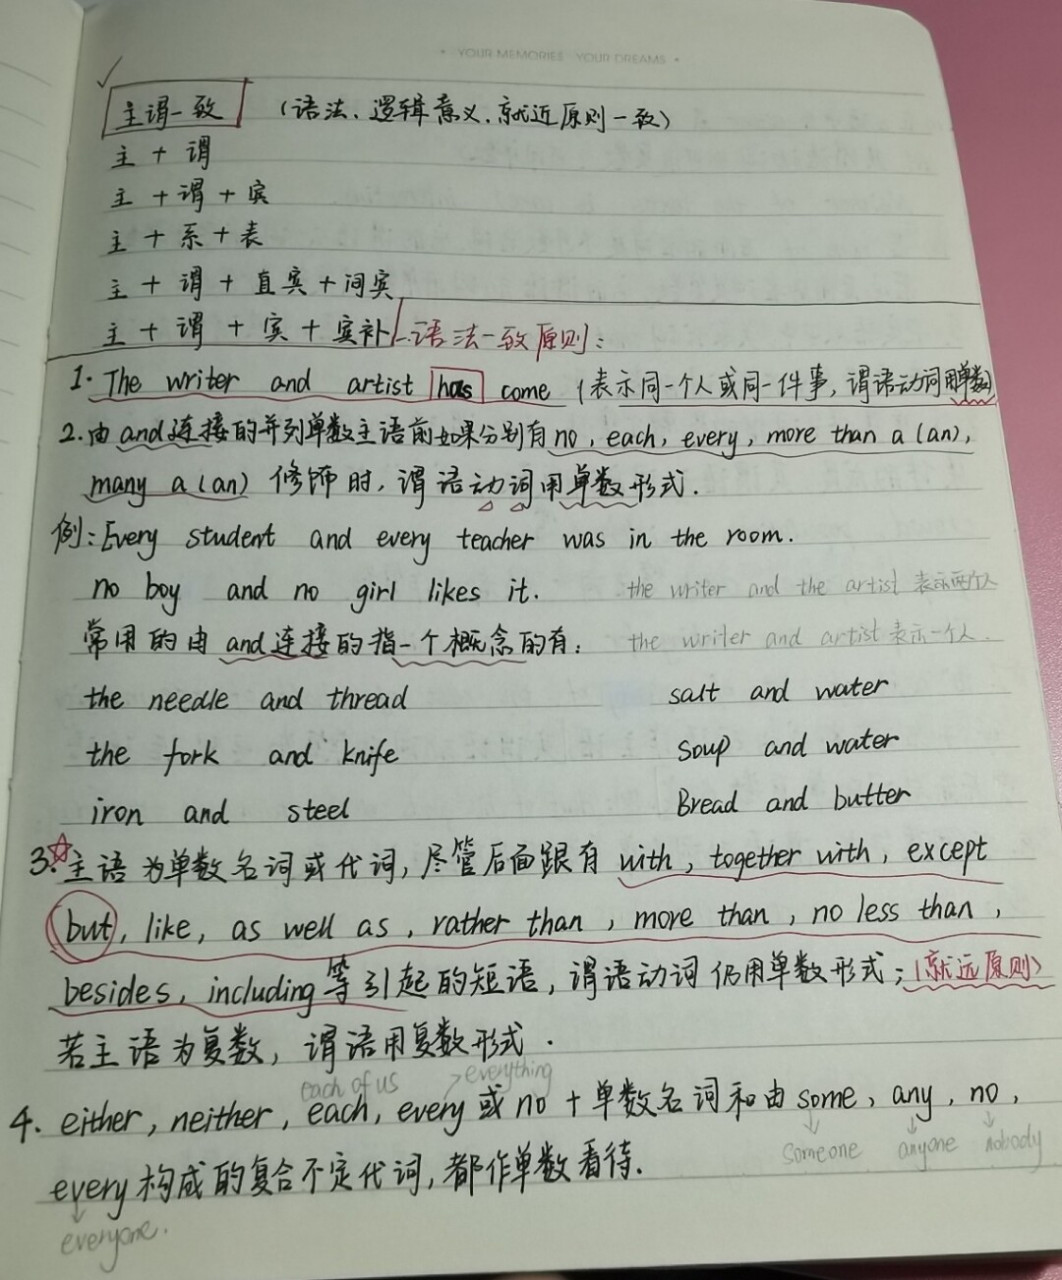 • YOUR MEMORIES YOUR DREAMS •
主谓一致 (语法、逻辑意义、就近原则一致)
主 + 谓
主 + 谓 + 宾
主 + 系 + 表
主 + 谓 + 直宾 + 间宾
主 + 谓 + 宾 + 宾补 一.语法一致原则:
1. The writer and artist has come (表示同一个人或同一件事,谓语动词用单数)
2.由 and连接的并列单数主语前如果分别有no, each, every, more than a (an),
many a (an) 修饰时,谓语动词用单数形式.
例: Every student and every teacher was in the room.
no boy and no girl likes it. the writer and the artist 表示两个人
常用的由 and连接的指一个概念的有: the writer and artist 表示一个人.
the needle and thread salt and water
the fork and knife soup and water
iron and steel Bread and butter
3.☆主语为单数名词或代词,尽管后面跟有 with, together with, except
but, like, as well as, rather than, more than, no less than,
besides, including等引起的短语,谓语动词仍用单数形式;(就远原则)
若主语为复数,谓语用复数形式.
each of us everything
4. either, neither, each, every 或 no + 单数名词和由 some, any, no,
someone anyone nobody
every构成的复合不定代词,都作单数看待.
everyone.